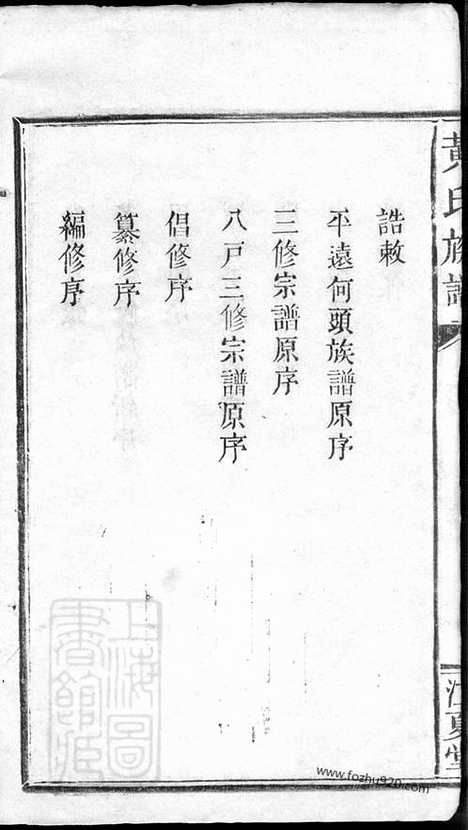 黃氏族譜
江夏堂
誥敕
平遠何頭族譜原序
三修宗譜原序
八戸三修宗譜原序
倡修序
纂修序
編修序
上海圖書館藏
www.fozhu920.com